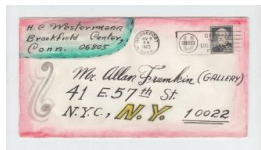 H. C. Westermann
Brookfield Center,
Conn. 06805
Mr. Allan Frumkin (GALLERY)
41 E. 57th St.
N.Y.C., N.Y. 10022